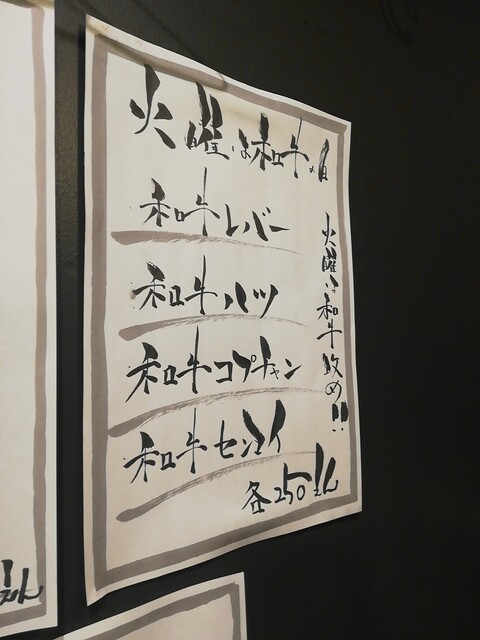 火曜は和牛の日
和牛レバー
和牛ハツ
和牛コプチャン
和牛センマイ
各250えん
火曜は和牛攻め!!
えん